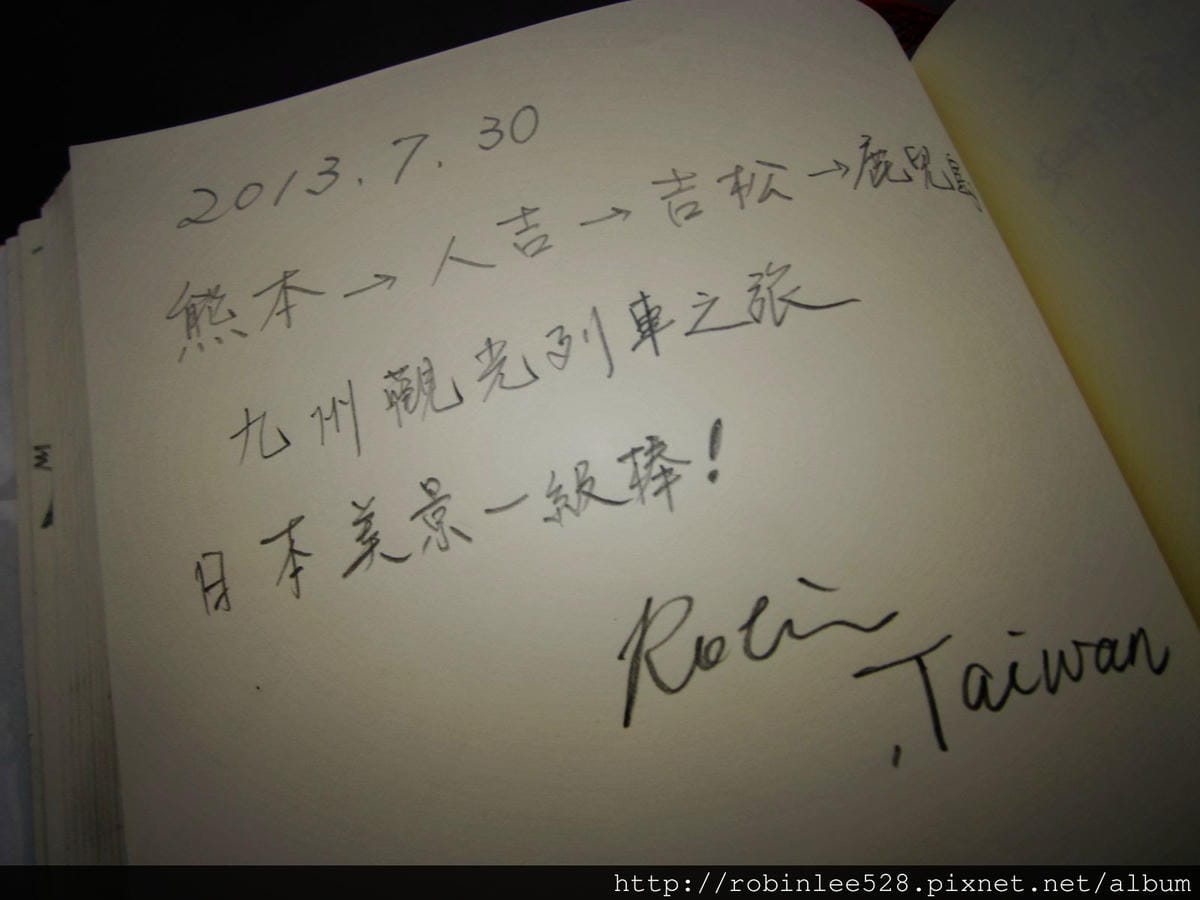 2013.7.30
熊本→人吉→吉松→鹿児島
九州觀光列車之旅
日本美景一級棒!
Robin
,Taiwan
http://robinlee528.pixnet.net/album